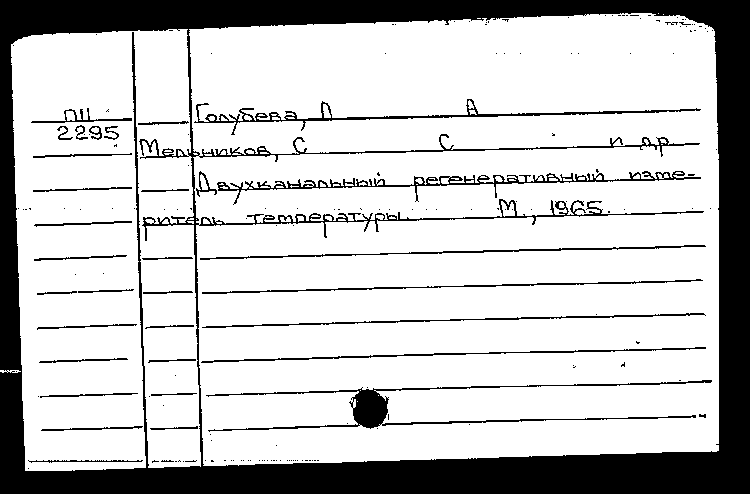 ПП Голубева, Л А
2295
Мельников, С С и др
Двухканальный регенеративный изме-
ритель температуры. М., 1965.